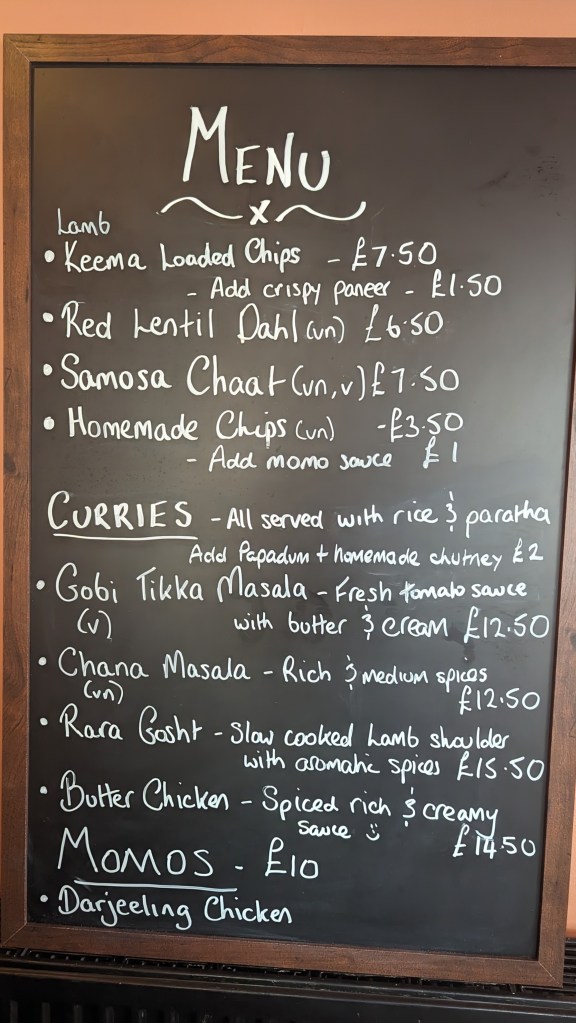 MENU
x
Lamb
• Keema Loaded Chips - £7.50
- Add crispy paneer - £1.50
• Red Lentil Dahl (vn) £6.50
• Samosa Chaat (vn, v) £7.50
• Homemade Chips (vn) -£3.50
- Add momo sauce £1
CURRIES - All served with rice & paratha
Add Papadum + homemade chutney £2
• Gobi Tikka Masala - Fresh tomato sauce
(v) with butter & cream £12.50
• Chana Masala - Rich & medium spices
(vn) £12.50
• Rara Gosht - Slow cooked Lamb shoulder
with aromatic spices £15.50
• Butter Chicken - Spiced rich & creamy
sauce :) £14.50
MOMOS - £10
• Darjeeling Chicken